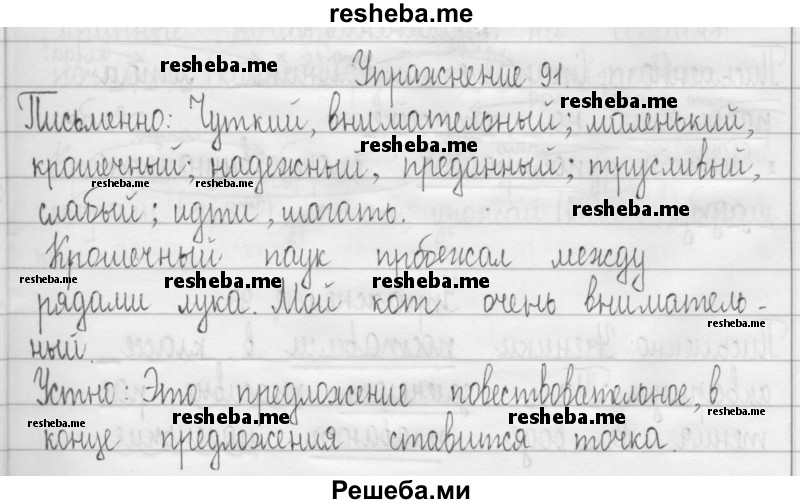 resheba.me
resheba.me
Упражнение 91
resheba.me
Письменно: Чуткий, внимательный; маленький,
крошечный; надежный, преданный; трусливый,
resheba.me resheba.me
слабый; идти, шагать. resheba.me
Крошечный паук пробежал между
resheba.me resheba.me resheba.me
рядами лука. Мой кот очень вниматель-
resheba.me
ный.
Устно: Это предложение повествовательное, в
resheba.me resheba.me resheba.me
конце предложения ставится точка.
resheba.me
Решеба.ми